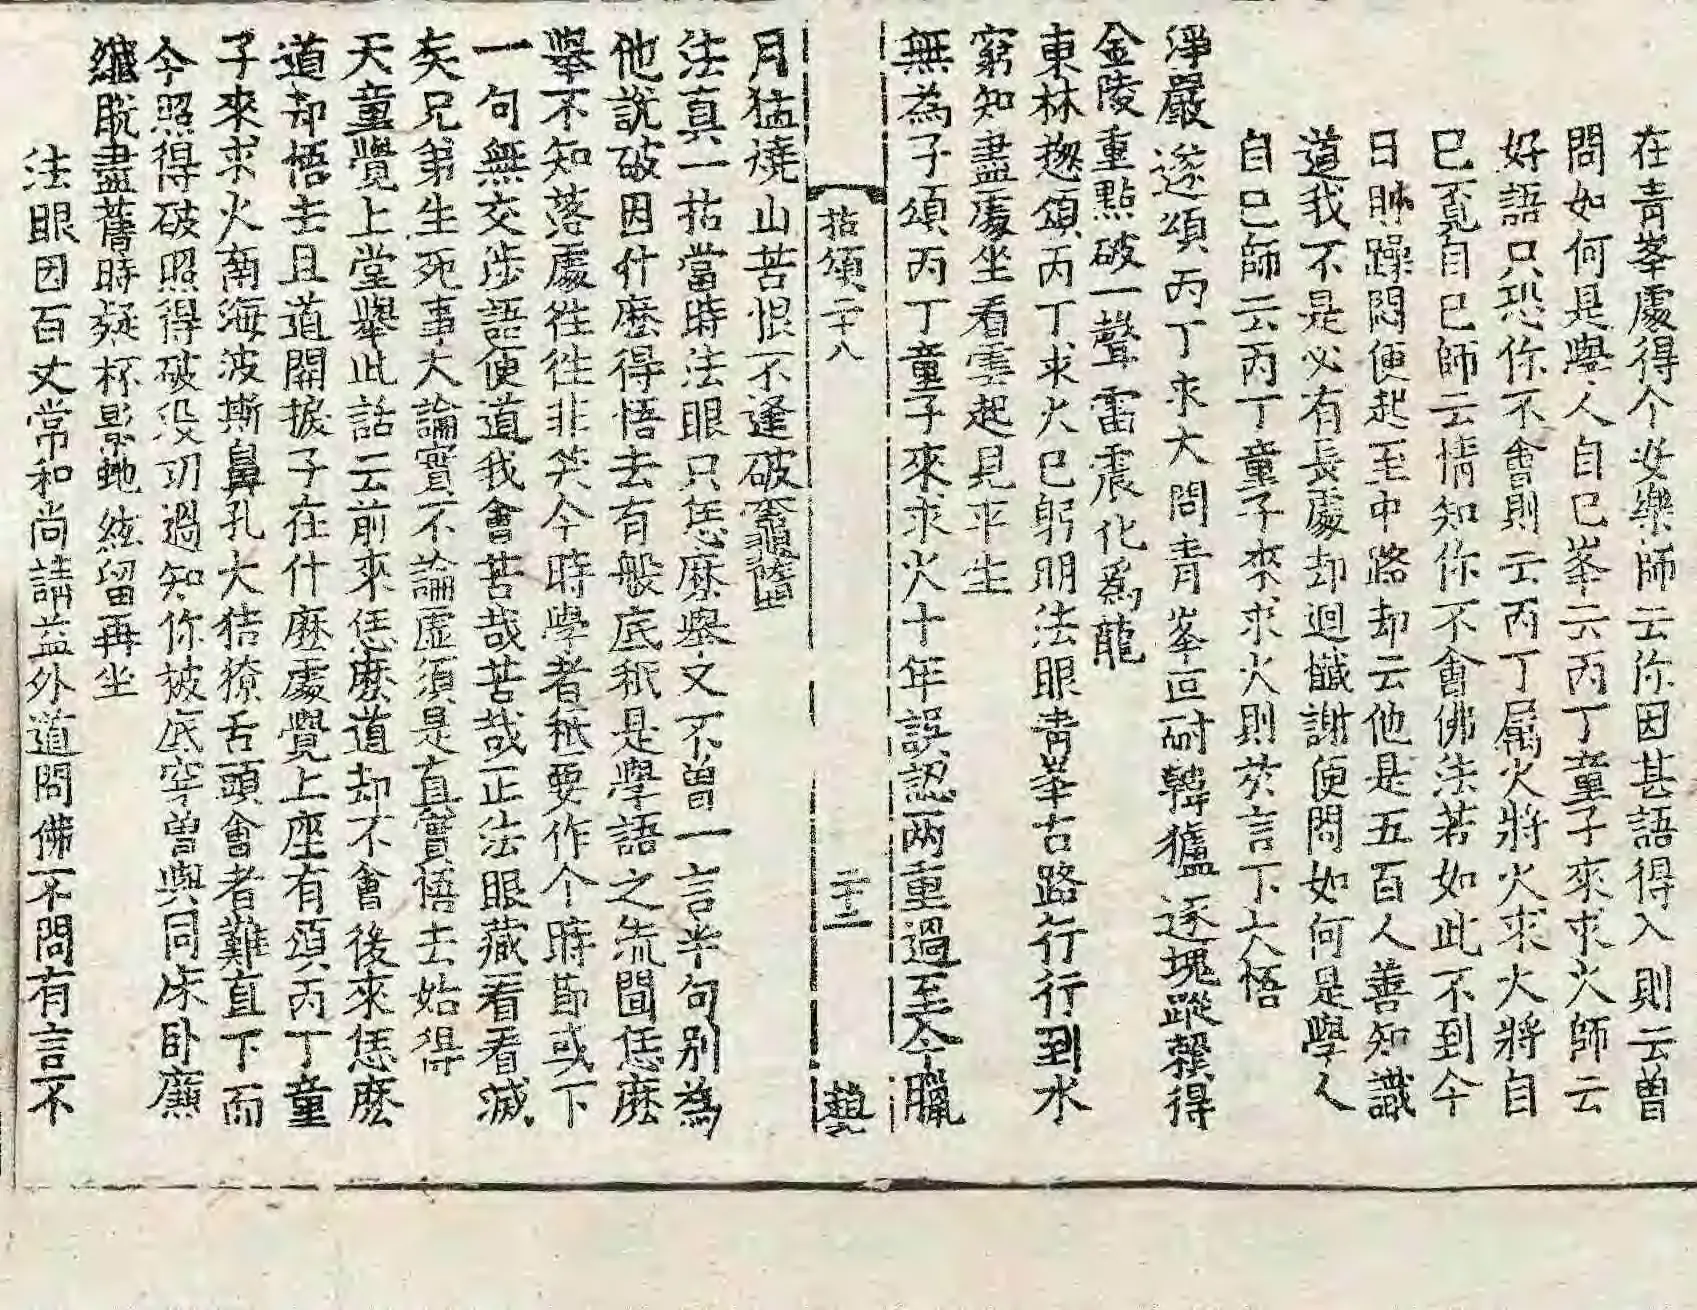 在青峯處得个安樂師云你因甚語得入則云曽
問如何是學人自巳峯云丙丁童子來求火師云
好語只恐你不會則云丙丁属火將火求火將自
巳覔自巳師云情知你不會佛法若如此不到今
日 躁悶便起至中路却云他是五百人善知識
道我不是必有長處却迴懺謝便問如何是學人
自巳師云丙丁童子來求火則扵言下大悟
淨嚴遂頌丙丁求火問青峯叵耐韓獹逐塊蹤賴得
金陵重點破一聲雷震化爲龍
東林揔頌丙丁求火巳躬明法眼青峯古路行行到水
窮知盡處坐看雲起見平生
無為子頌丙丁童子來求火十年誤認兩重過至今臘
拈頌二十八 二十二 趙
月猛燒山苦恨不逢破竈墮
法真一拈當時法眼只恁麽舉又不曽一言半句別為
他說破因什麽得悟去有般底秖是學語之流聞恁麽
舉不知落處徃徃非笑今時學者秖要作个時節或下
一句無交涉語便道我會苦哉苦哉正法眼藏看看滅
矣兄弟生死事大論實不論虛須是真實悟去始得
天童覺上堂舉此話云前來恁麽道却不會後來恁麽
道却悟去且道開捩子在什麽處覺上座有頌丙丁童
子來求火南海波斯鼻孔大結獠舌頭會者難直下而
今照得破照得破沒功過知你被底穿曽與同床卧廉
纖脫盡舊時疑杯影蛇 留再坐
法眼因百丈常和尚請益外道問佛不問有言不